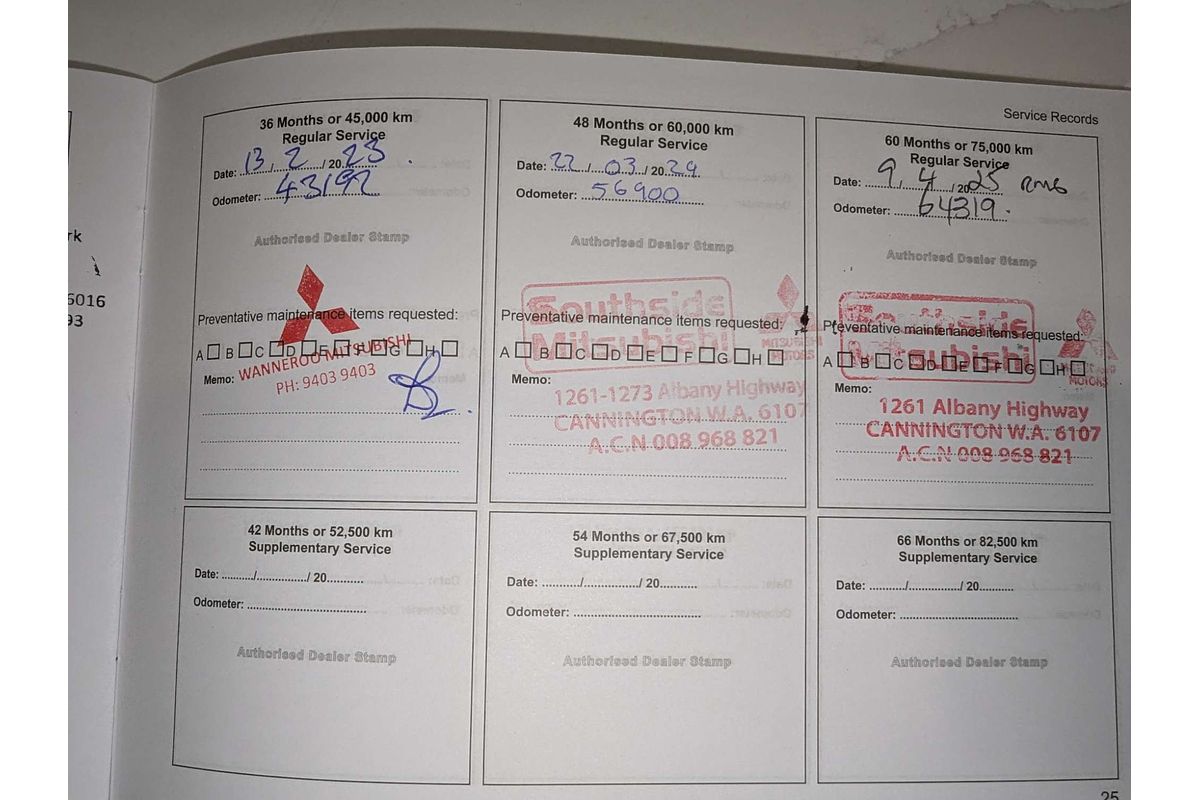 Service Records
rk
6016
93
36 Months or 45,000 km
Regular Service
Date: 13 / 2 / 20 23 .
Odometer: 43192
Authorised Dealer Stamp
Preventative maintenance items requested:
A B C D E F G H
WANNEROO MITSUBISHI
PH: 9403 9403
Memo:
48 Months or 60,000 km
Regular Service
Date: 22 / 03 / 20 24
Odometer: 56900
Authorised Dealer Stamp
Southside
Mitsubishi
Preventative maintenance items requested:
MITSUBISHI
MOTORS
A B C D E F G H
Memo:
1261-1273 Albany Highway
CANNINGTON W.A. 6107
A.C.N 008 968 821
60 Months or 75,000 km
Regular Service
Date: 9 / 4 / 2025
Odometer: 64319.
Authorised Dealer Stamp
Southside
Mitsubishi
Preventative maintenance items requested:
A B C D E F G H
MOTORS
Memo:
1261 Albany Highway
CANNINGTON W.A. 6107
A.C.N 008 968 821
42 Months or 52,500 km
Supplementary Service
Date: ........../................/ 20...........
Odometer: ....................................
Authorised Dealer Stamp
54 Months or 67,500 km
Supplementary Service
Date: ........../................/ 20...........
Odometer: ....................................
Authorised Dealer Stamp
66 Months or 82,500 km
Supplementary Service
Date: ........../................/ 20...........
Odometer: ....................................
Authorised Dealer Stamp
25